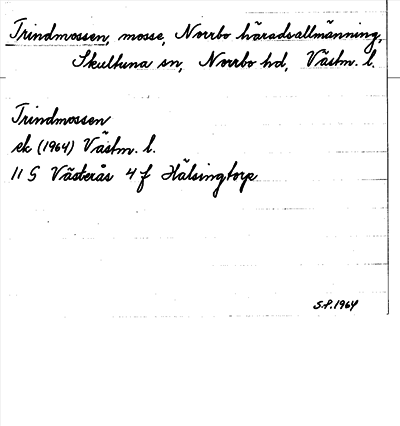 Trindmossen, mosse, Norrbo häradsallmänning,
Skultuna sn, Norrbo hd, Västm. l.
Trindmossen
ek (1964) Västm. l.
11 G Västerås 4 f Hälsingtorp
S.P. 1964